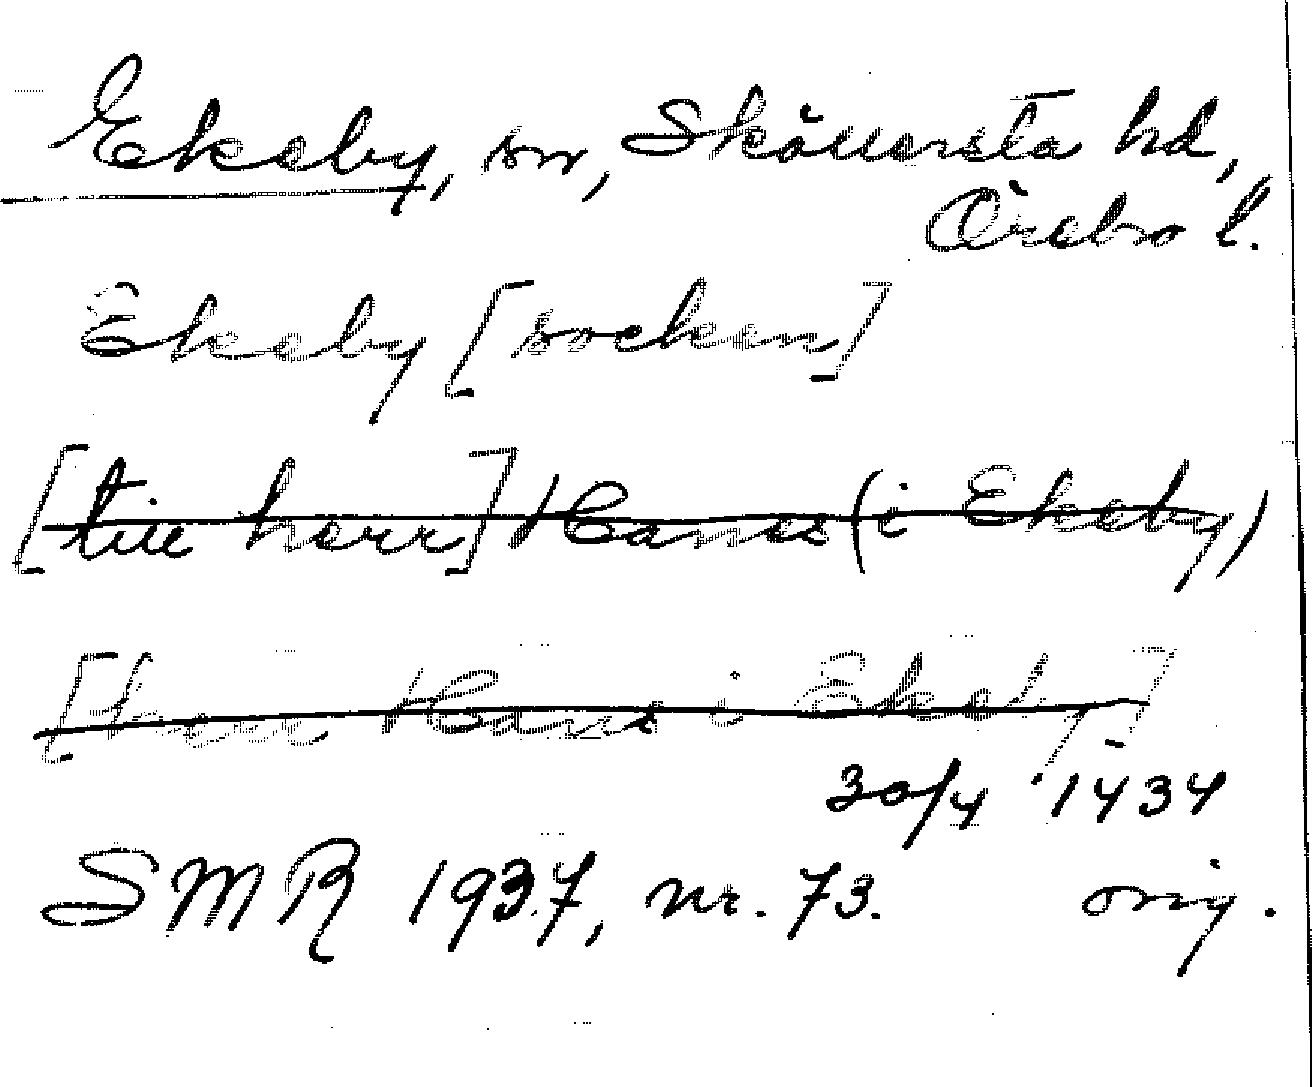 Ekeby, sn, Sköllersta hd,
Örebro l.
Ekeby [socken]
[till herr] Hannes (i Ekeby)
[herr Hans i Ekeby]
30/4 1434
SMR 1937, nr. 73. orig.